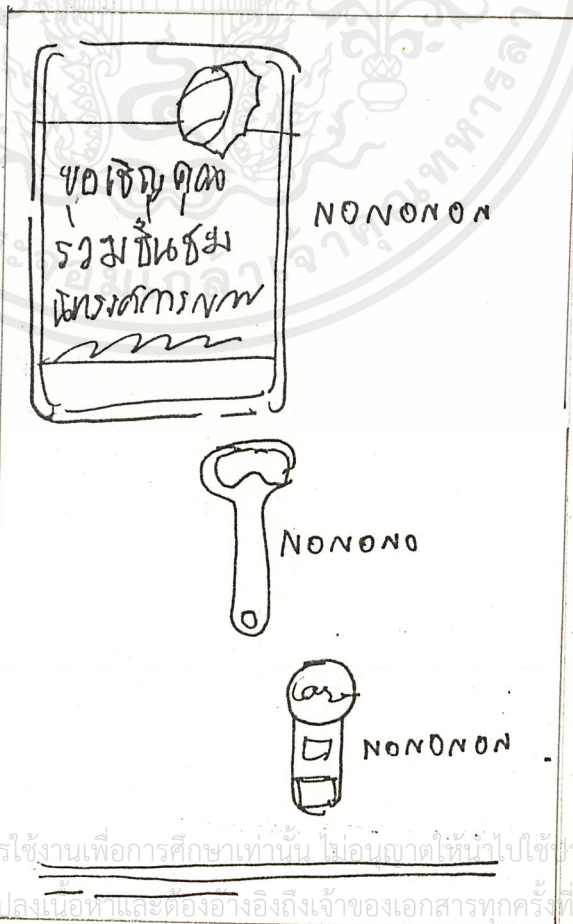 ขอเชิญคุณ
ร่วมชื่นชม
NONONON
NONONO
NONONON
รใช้งานเพื่อการศึกษาเท่านั้น ไม่อนุญาตให้นำไปใช้ป
ปลงเนื้อหาและต้องอ้างอิงถึงเจ้าของเอกสารทุกครั้งที่